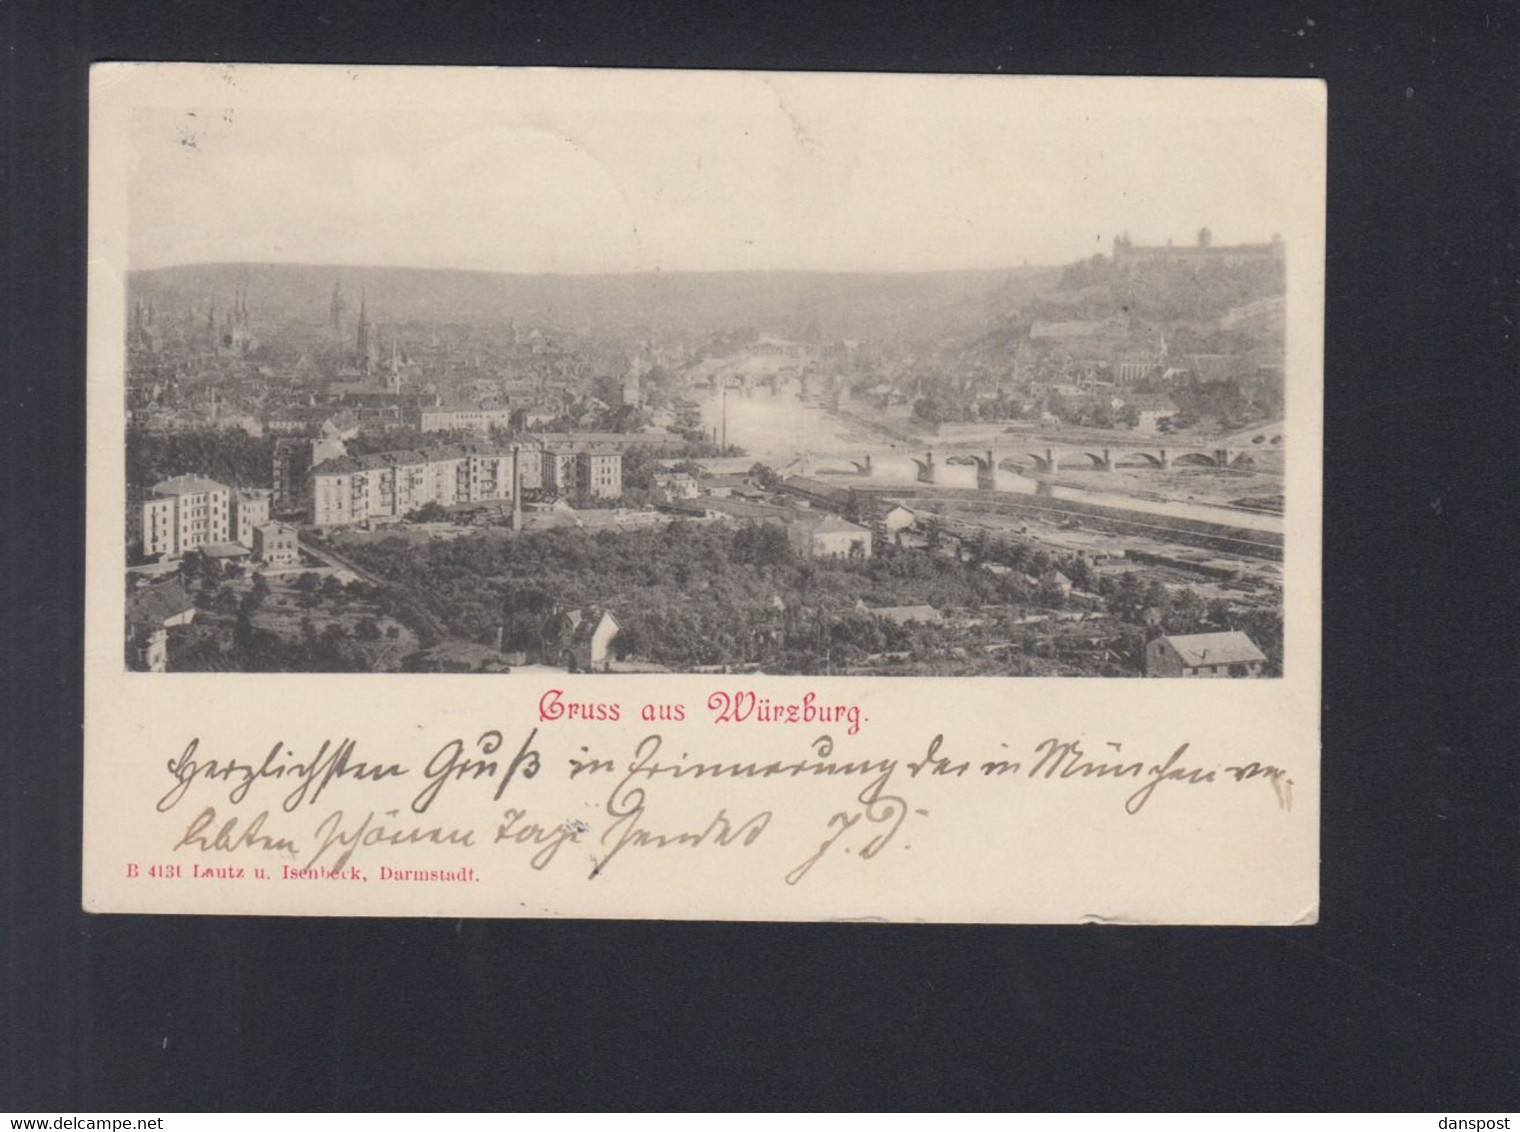 Gruss aus Würzburg.
Herzlichsten Gruß in Erinnerung der in München ver-
lebten schönen Tage sendet J. D.
B 4131 Lautz u. Isenbeck, Darmstadt.
www.delcampe.net
danspost